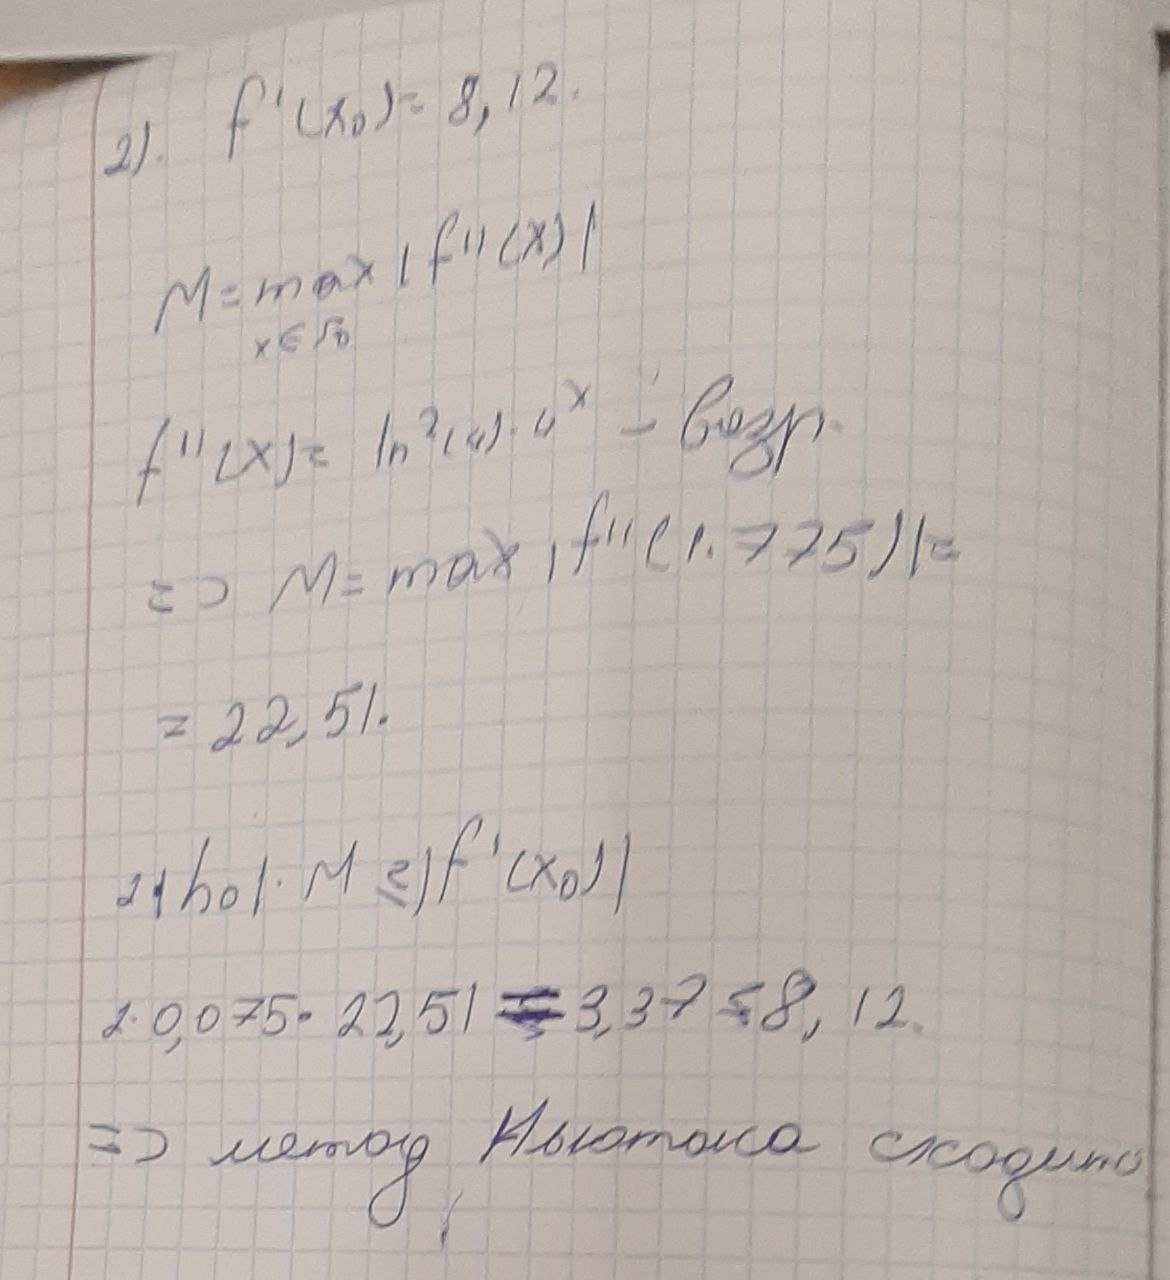 2). f'(x₀) = 8,12.
M = max |f''(x)|
x ∈ S₀
f''(x) = ln²(4)·4ˣ – возр.
=> M = max |f''(1.775)| =
= 22,51.
2|h₀|·M ≤ |f'(x₀)|
2·0,075·22,51 = 3,37 ≤ 8,12.
=> метод Ньютона сходитс